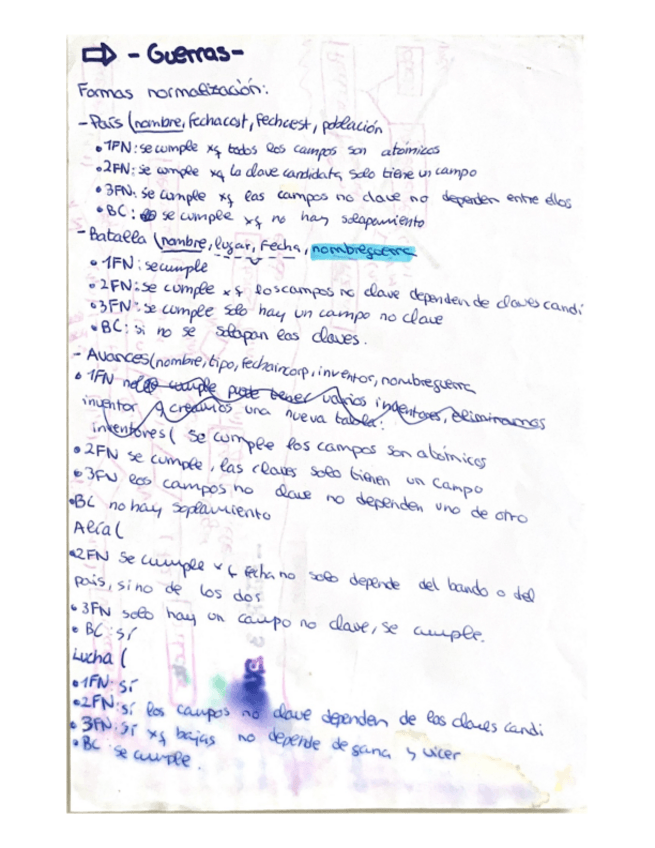 ⇒ - Guerras -
Formas normalización:
- País (nombre, fechacost, fechcest, población
• 1FN: se cumple xq todos los campos son atómicos
• 2FN: se cumple xq la clave candidata solo tiene un campo
• 3FN: se cumple xq las campos no clave no dependen entre ellos
• BC: se cumple xq no hay solapamiento
- Batalla (nombre, lugar, fecha, nombreguerra
• 1FN: se cumple
• 2FN: se cumple xq los campos no clave dependen de claves candi
• 3FN: se cumple solo hay un campo no clave
• BC: si no se solapan las claves.
- Avances (nombre, tipo, fechaincorp, inventor, nombreguerra
• 1FN no cumple puede tener varios inventores, eliminamos
inventor y creamos una nueva tabla:
inventores ( se cumple los campos son atómicos
• 2FN se cumple, las claves solo tienen un campo
• 3FN los campos no clave no dependen uno de otro
• BC no hay soplamiento
Alía (
• 2FN se cumple xq fecha no solo depende del bando o del
país, sino de los dos
• 3FN solo hay un campo no clave, se cumple.
• BC: sí
Lucha (
• 1FN: sí
• 2FN: sí los campos no clave dependen de las claves candi
• 3FN: sí xq bajas no depende de gana y vicer
• BC se cumple.